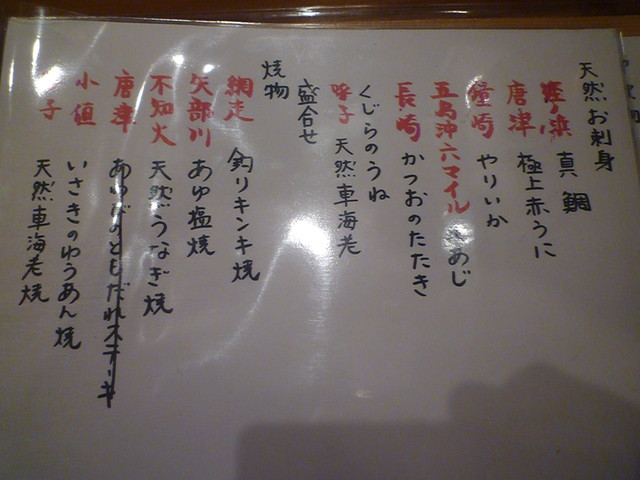 天然お刺身
真鯛
唐津 極上赤うに
鐘崎 やりいか
五島沖六マイル あじ
長崎 かつおのたたき
くじらのうね
呼子 天然車海老
盛合せ
焼物
網走 釣りキンキ焼
矢部川 あゆ塩焼
不知火 天然うなぎ焼
唐津 あわびのともだれステーキ
小値 いさきのゆうあん焼
子 天然車海老焼